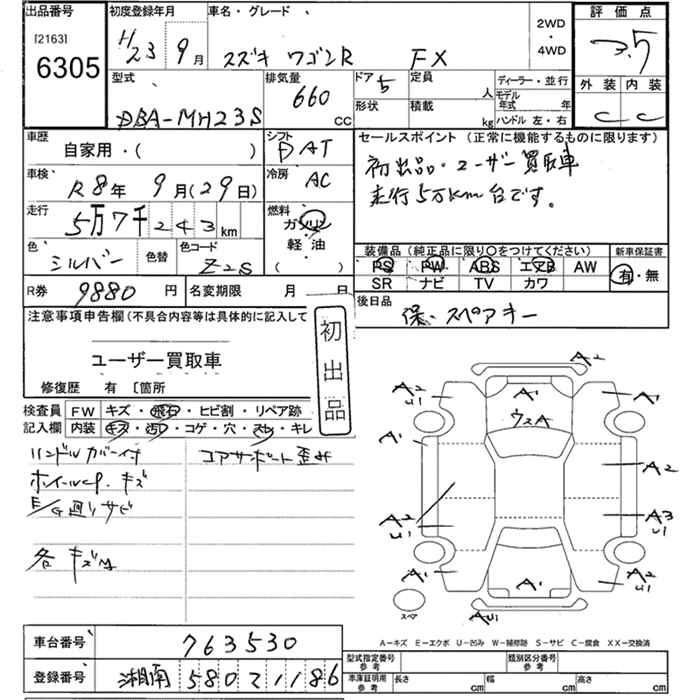 出品番号 初度登録年月 車名・グレード 2WD・4WD 評価点
[2163] 6305
H23 9月 スズキ ワゴンR FX 3.5
型式 排気量 ドア 定員 ディーラー・並行 外装 内装
DBA-MH23S 660 CC 5 人 モデル年式 年 C C
形状 積載 kg ハンドル 左・右
車歴 シフト セールスポイント(正常に機能するものに限ります)
自家用・( ) F AT
初出品・ユーザー買取車
車検 R8年 9月(29日) 冷房 AC
走行5万km台です。
走行 5万7千243km 燃料 ガソリン
軽油
( )
色 シルバー 色替 色コード Z2S
装備品(純正品に限り〇をつけてください) 新車保証書
PS PW ABS エアB AW 有・無
SR ナビ TV カワ
R券 9880円 名変期限 月 日
後日品 保、スペアキー
注意事項申告欄(不具合内容等は具体的に記入して
ユーザー買取車
初出品
修復歴 有 〔箇所
検査員記入欄
FW キズ・飛石・ヒビ割・リペア跡
内装 キズ・汚レ・コゲ・穴・スレ・キレ
ハンドルカバー付 コアサポート歪サ
ホイールcp.キズ
E/G廻りサビ
各キズM
A2
A2 U1 A1 A1 A2 U1
ウスA
A1 A2
A2 U1 A3 U1
A1 A1 A2 U1
スペア AU1
A-キズ E-エクボ U-凹み W-補修跡 S-サビ C-腐食 XX-交換済
車台番号 763530
型式指定番号 参考 類別区分番号 参考
登録番号 湘南 580 て 1186
車庫証明用 参考 長さ cm 幅 cm 高さ cm